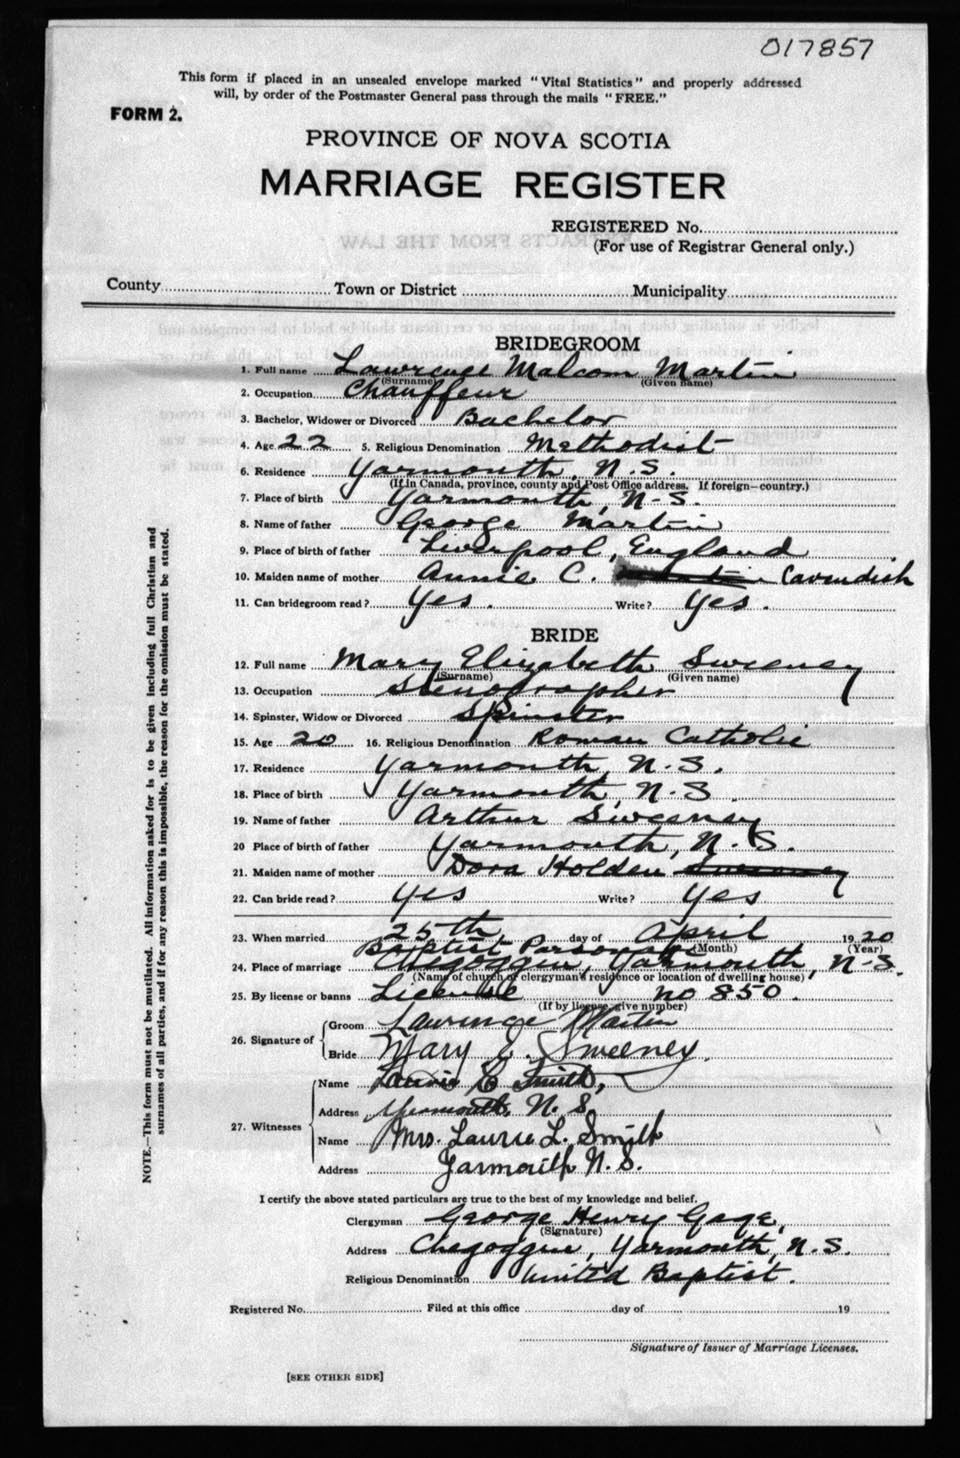 017857
This form if placed in an unsealed envelope marked "Vital Statistics" and properly addressed
will, by order of the Postmaster General pass through the mails "FREE."
FORM 2.
PROVINCE OF NOVA SCOTIA
MARRIAGE REGISTER
REGISTERED No.
(For use of Registrar General only.)
County Town or District Municipality
BRIDEGROOM
1. Full name Lawrence Malcom Martin
(Surname) (Given name)
2. Occupation Chauffeur
3. Bachelor, Widower or Divorced Bachelor
4. Age 22 5. Religious Denomination Methodist
6. Residence Yarmouth, N.S.
(If in Canada, province, county and Post Office address. If foreign—country.)
7. Place of birth Yarmouth, N-S.
8. Name of father George Martin
9. Place of birth of father Liverpool, England
10. Maiden name of mother Annie C. Cavendish
11. Can bridegroom read? Yes. Write? Yes.
BRIDE
12. Full name Mary Elizabeth Sweeney
(Surname) (Given name)
13. Occupation Stenographer
14. Spinster, Widow or Divorced Spinster
15. Age 20 16. Religious Denomination Roman Catholic
17. Residence Yarmouth, N.S.
18. Place of birth Yarmouth, N.S.
19. Name of father Arthur Sweeney
20 Place of birth of father Yarmouth, N.S.
21. Maiden name of mother Dora Holden Sweeney
22. Can bride read? Yes Write? Yes
23. When married 25th day of April 1920
(Month) (Year)
Baptist Parsonage
24. Place of marriage Chegoggin, Yarmouth, N-S.
(Name of church or clergyman's residence or location of dwelling house)
25. By license or banns License no 850.
(If by license, give number)
26. Signature of
Groom Lawrence Martin
Bride Mary E. Sweeney.
27. Witnesses
Name Laurie L Smith,
Address Yarmouth, N.S.
Name Mrs. Laurie L. Smith
Address Yarmouth N.S.
I certify the above stated particulars are true to the best of my knowledge and belief.
Clergyman George Henry Gage,
(Signature)
Address Chegoggin, Yarmouth, N.S.
Religious Denomination United Baptist.
Registered No. Filed at this office day of 19
Signature of Issuer of Marriage Licenses.
[SEE OTHER SIDE]
NOTE.—This form must not be mutilated. All information asked for is to be given including full Christian and
surnames of all parties, and if for any reason this is impossible, the reason for the omission must be stated.